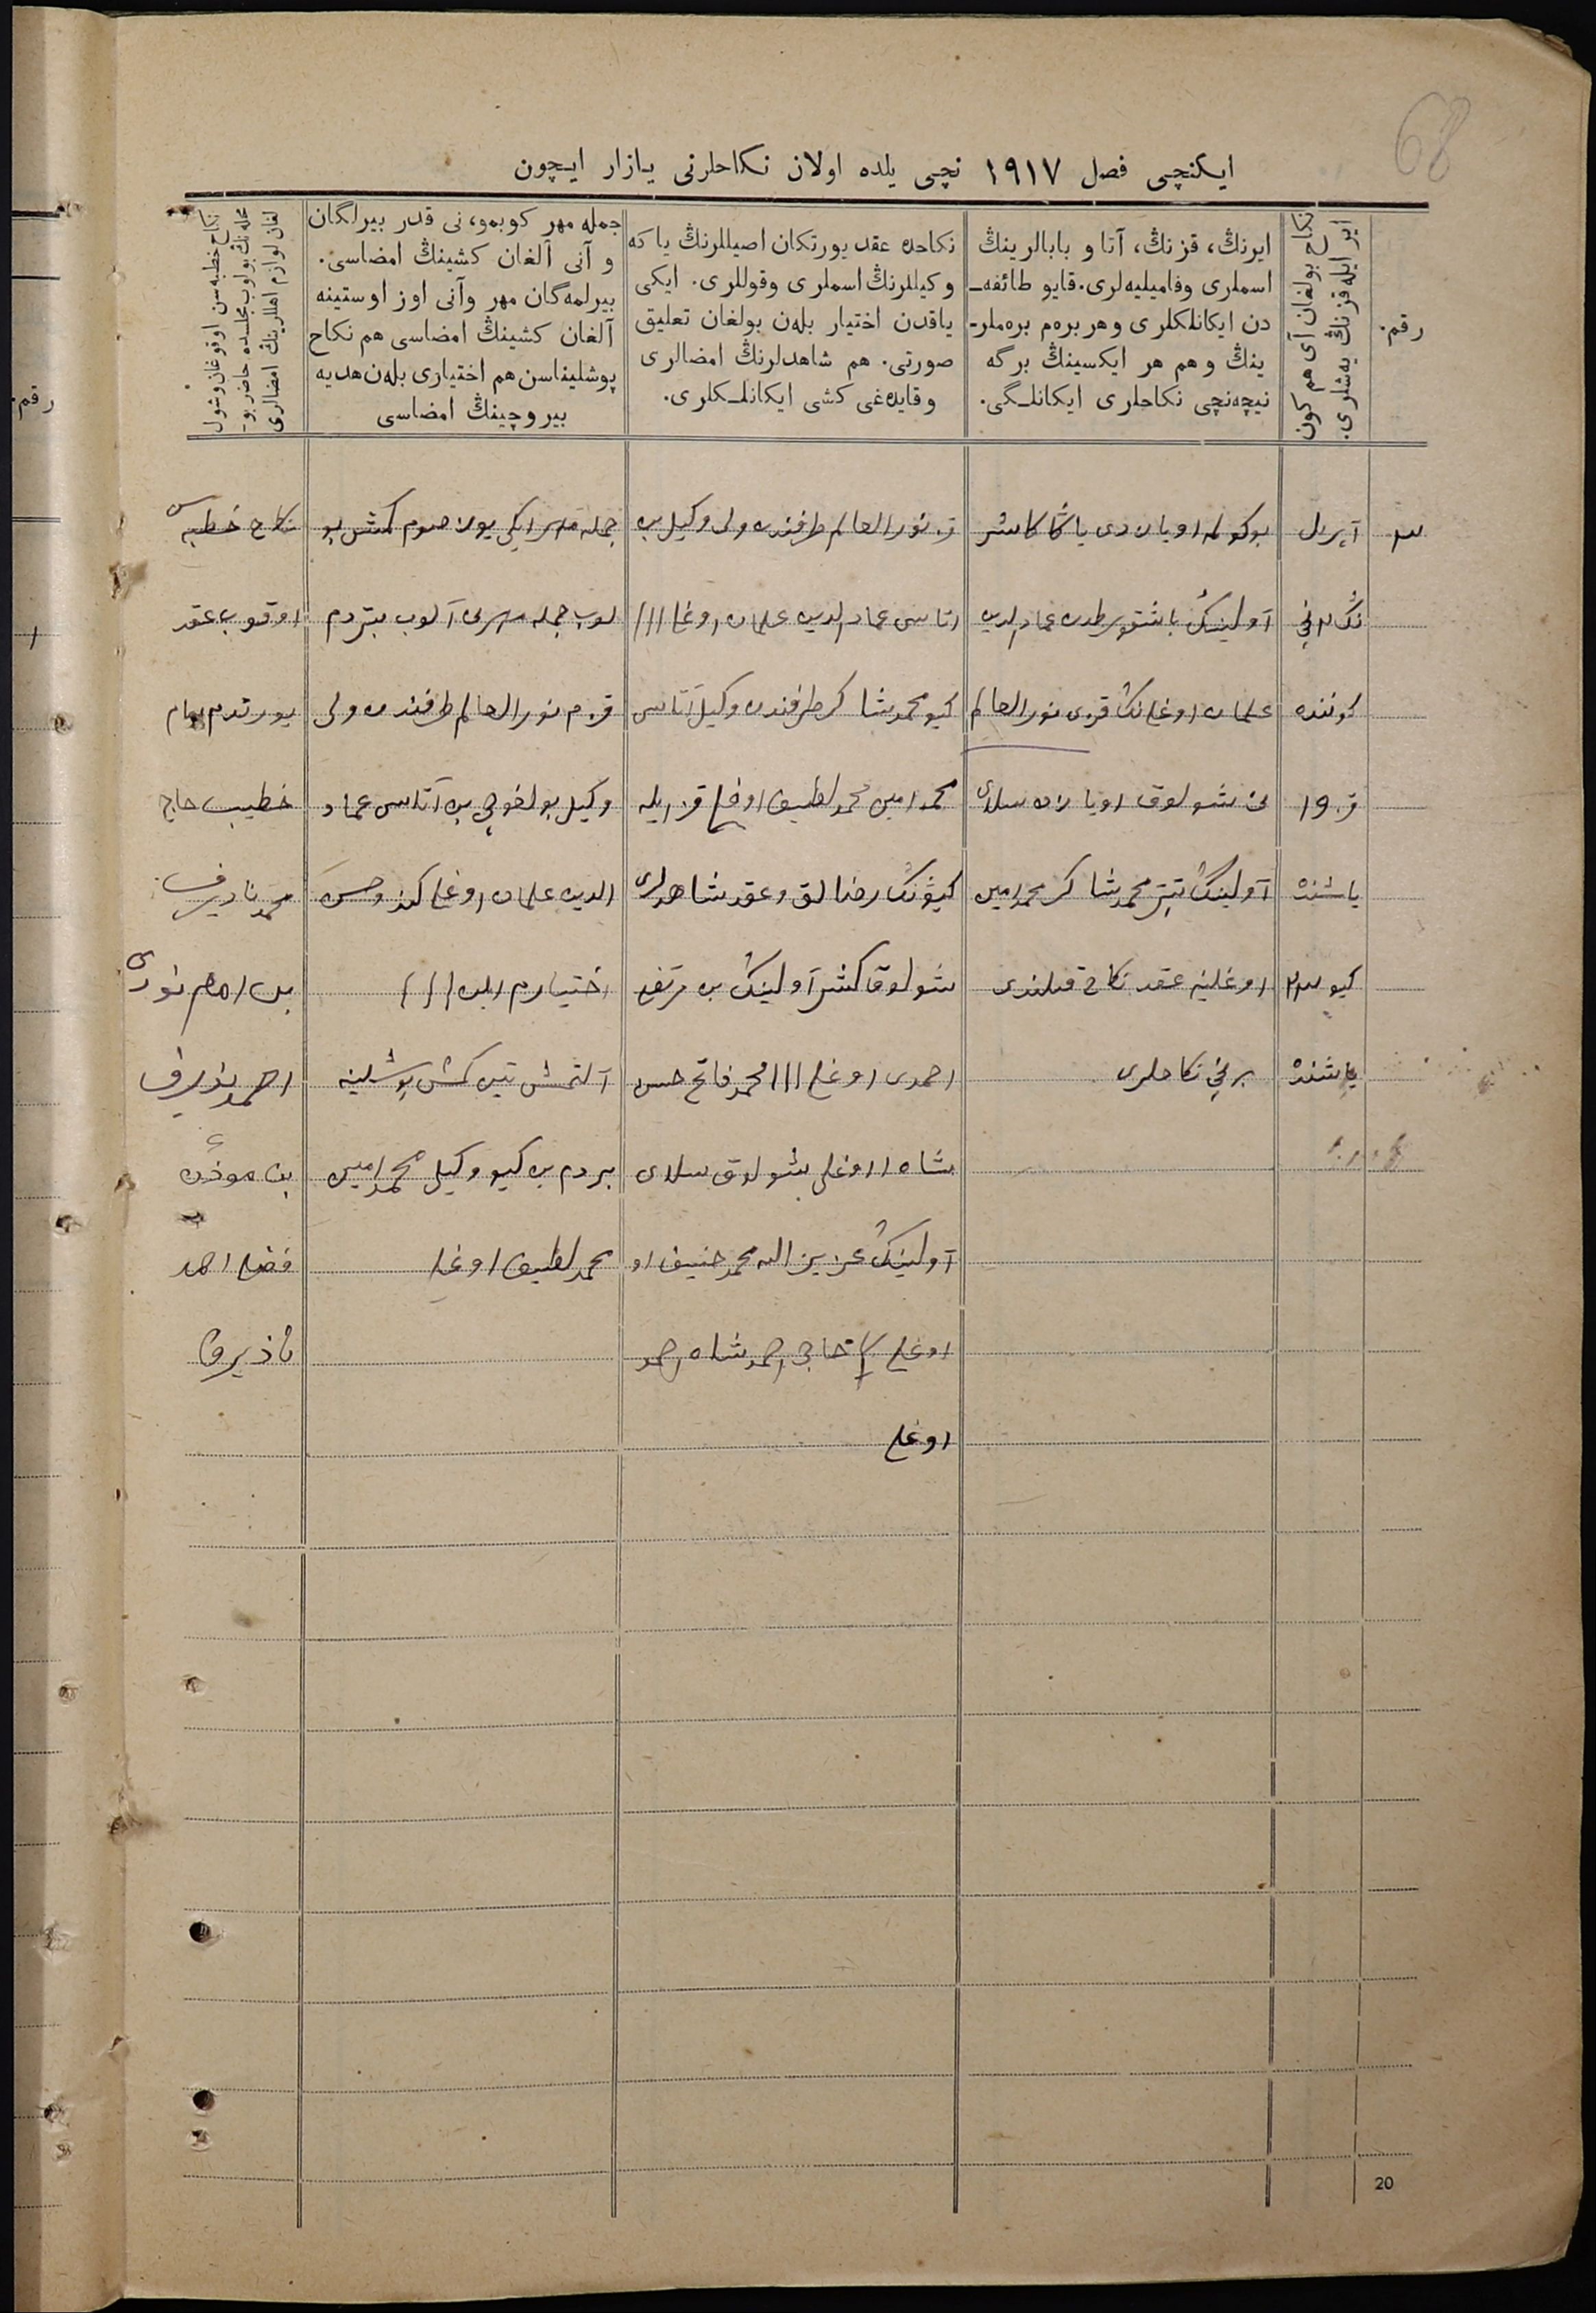 68
ایکنچی فصل ١٩١٧ نچی یلده اولان نکاحلرنی یازار ایچون
رقم.
نکاح بولغان آی هم کون
ایر ایله قزنڭ یەشلری.
ایرنڭ، قزنڭ، آتا و بابالرینڭ
اسملری وفامیلیەلری. قایو طائفه‌ـ
دن ایکانلکلری و هر بره‌م بره‌ملرـ
ینڭ و هم هر ایکسینڭ برگه
نیچەنچی نکاحلری ایکانلـگی.
نکاحده عقد یورتکان اصیللرنڭ یا که
و کیللرنڭ اسملری وقوللری. ایکی
یاقدن اختیار بلەن بولغان تعلیق
صورتی. هم شاهدلرنڭ امضالری
و قایدەغی کشی ایکانلـکلری.
جمله مهر کوبمو، نی قدر بیرلگان
و آنی آلغان کشینڭ امضاسی.
بیرلمەگان مهر وآنی اوز اوستینه
آلغان کشینڭ امضاسی هم نکاح
پوشلیناسن هم اختیاری بلەن هدیه
بیروچینڭ امضاسی
نکاح خطبه‌سن اوقوغان وشول
محله‌نڭ بولوب مجلسده حاضر بوـ
لغان لوازم اهللرینڭ امضالری
٣
آپریل
نڭ ٣ نچی
کوننده
قز ١٩
یاشنده
کیو ٢٣
یاشنده
بوکولمه اویازندی یاڭا کاشر
آولینڭ باشقورطدن عمادالدین
علمان اوغلینڭ قزی نورالعالم
نی شولوق اویازده سلای
آولینڭ تیپتر محمدشاکر محمدامین
اوغلینه عقد نکاح قیلندی
برنچی نکاحلری
قز نورالعالم طرفندن ولی وکیل بن
اتاسی عمادالدین علمان اوغلی ///
کیو محمدشاکر طرفندن وکیل آتاسی
محمدامین محمدلطیف اوغلی قز ایله
کیونڭ رضالق وعقد شاهدلری
شولوق کاشر آولینڭ بن مرتضی
احمدی اوغلی /// محمد فاتح حسن
شاه اوغلی شولوق سلای
آولینڭ عزیزالله محمد حنیف او
اوغلی فتاحی احمدشاه احمد
اوغلی
جمله مهر ایکی یوز صوم کمش بو
لوب جمله مهرنی آلوب بتردم
قزم نورالعالم طرفندن ولی
وکیل بولغوچی بن آتاسی عماد
الدین علمان اوغلی کندوم
اختیارم ایلن ///
آلتمش تین کمش پوشلینه
بردم بن کیو وکیلی محمدامین
محمدلطیف اوغلی
نکاح خطبه‌سی
اوقوب عقد
یورتدم امام
خطیب حاجی
محمد نادیرف
بن امام نوری
احمد نذیرف
بن موذن
فضل احمد
ناذیروف
رقم.
١
20